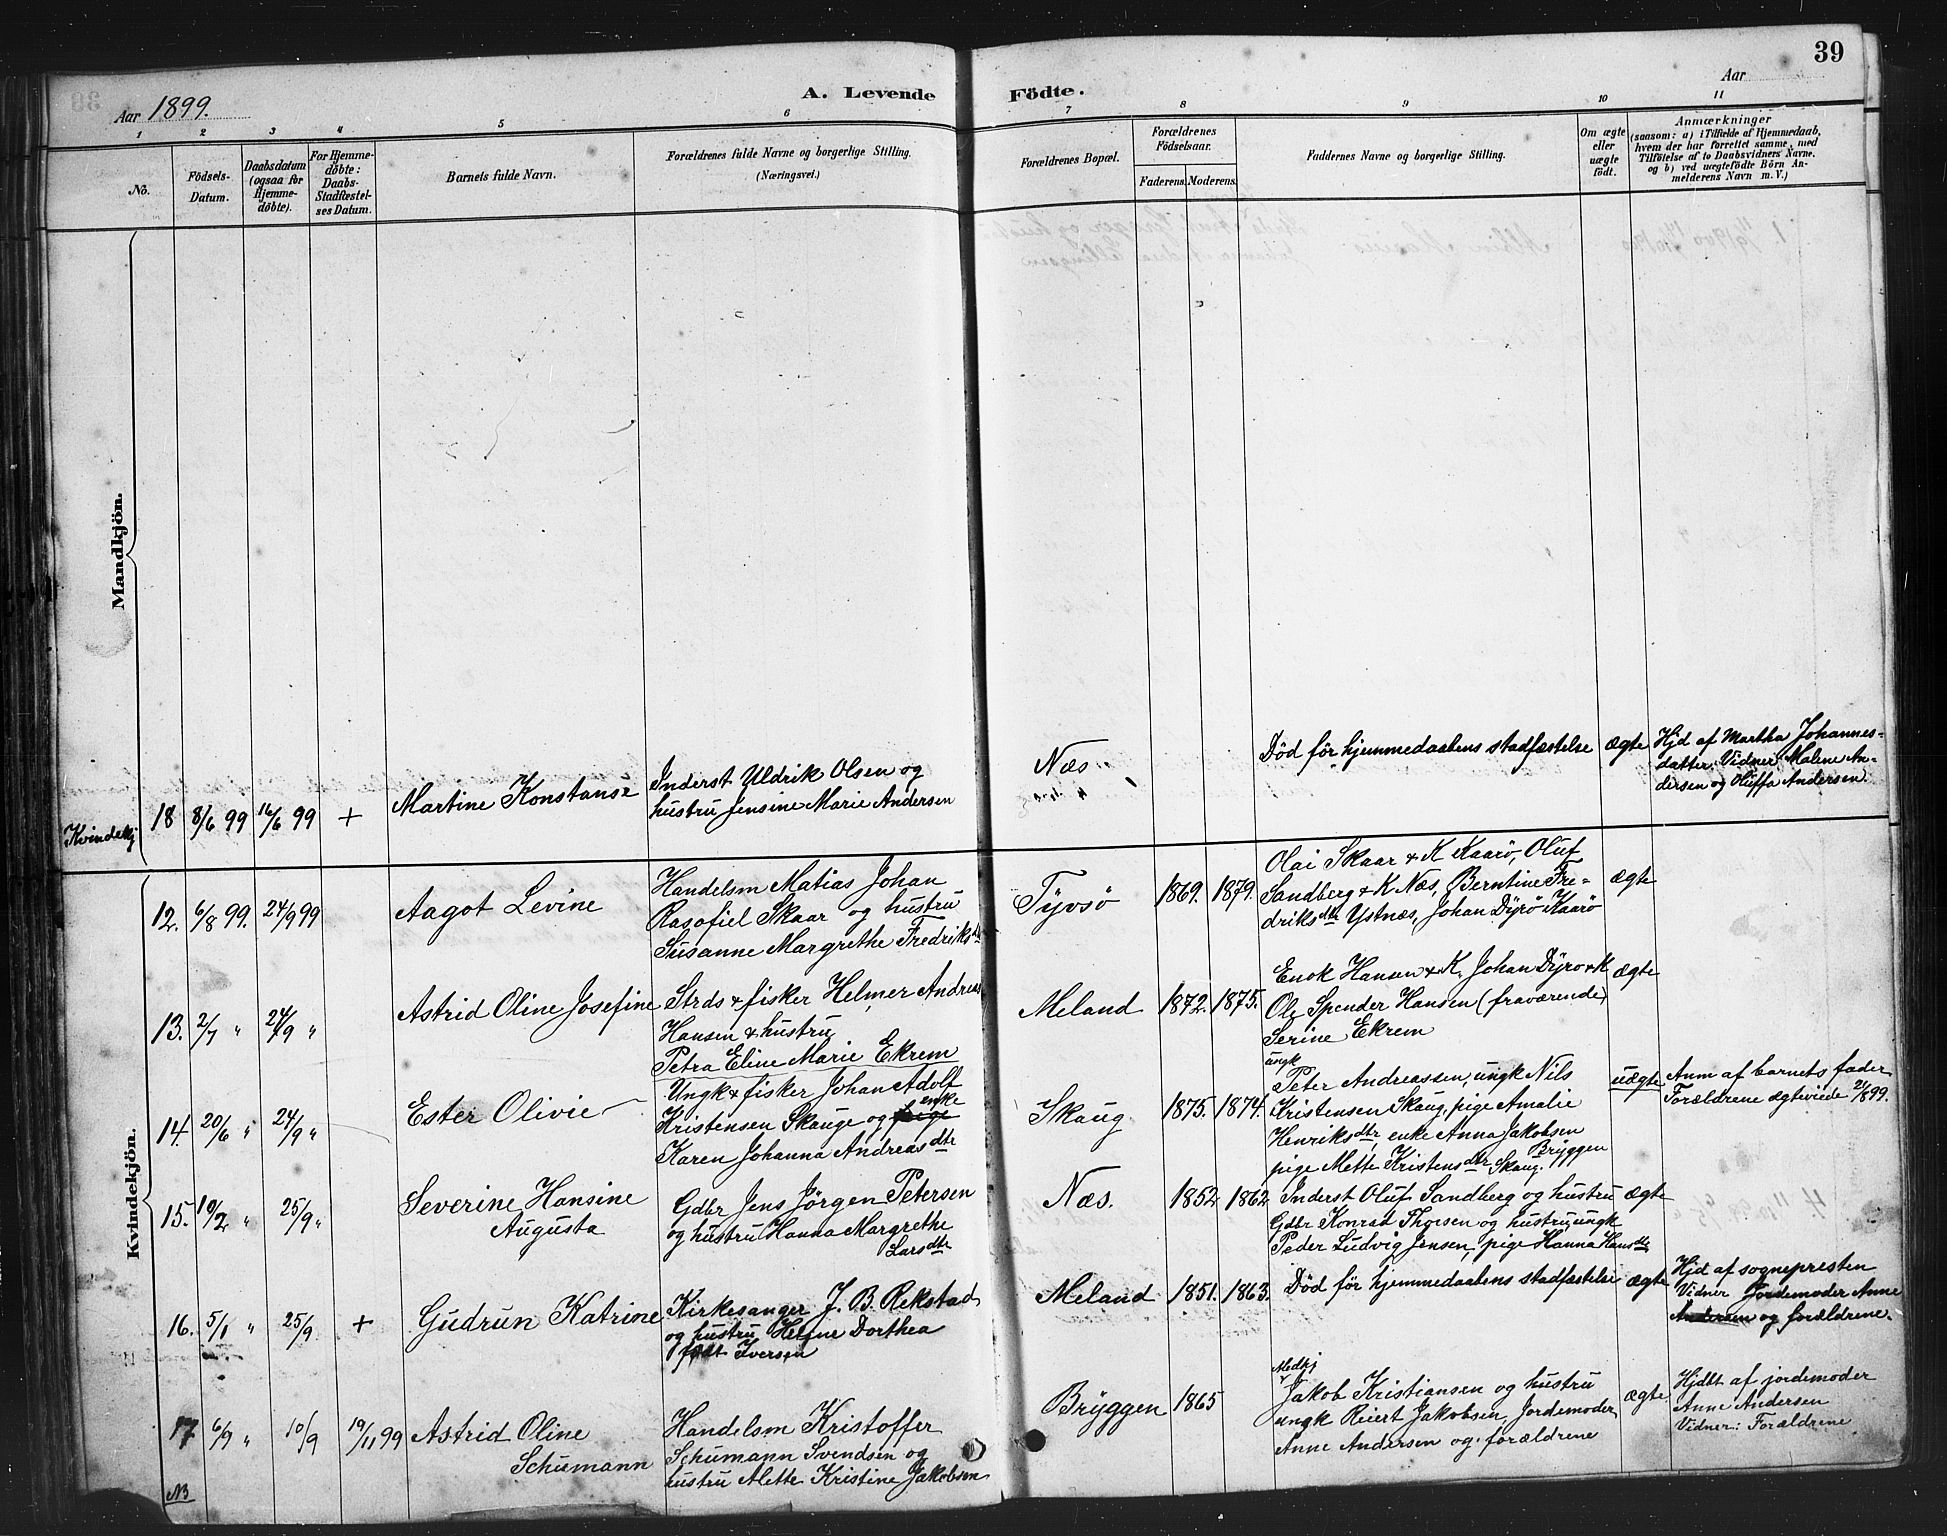 39
Aar 1899.
A. Levende Födte.
Aar
1 2 3 4 5 6 7 8 9 10 11
No.
Födsels-
Datum.
Daabsdatum
(ogsaa for
Hjemme-
döbte).
For Hjemme-
döbte:
Daabs-
Stadfæstel-
ses Datum.
Barnets fulde Navn.
Forældrenes fulde Navne og borgerlige Stilling.
(Næringsvei.)
Forældrenes Bopæl.
Forældrenes
Födselsaar.
Faderens. Moderens.
Faddernes Navne og borgerlige Stilling.
Om ægte
eller
uægte
födt.
Anmærkninger
(saasom: a) i Tilfælde af Hjemmedaab,
hvem der har forrettet samme, med
Tilföielse af to Daabsvidners Navne.
og b) ved uægtefödte Börn An-
melderens Navn m. V.)
Mandkjön.
Kvindekj
18 8/6 99 16/6 99 +
Martine Konstanse
Inderst Uldrik Olsen og
hustru Jensine Marie Andersen
Næs
Död för hjemmedaabens stadfæstelse
ægte
Hjd af Martha Johannes-
datter. Vidner: Malene An-
dersen og Oluffa Andersen.
Kvindekjön.
12. 6/8 99. 24/9 99
Aagot Levine
Handelsm Matias Johan
Rasofiel Skaar og hustru
Susanne Margrethe Fredriksdtr
Tÿvsö
1869. 1879.
Olai Skaar & K Kaarö, Oluf
Sandberg & K Næs, Berntine Fre-
driksdtr Ystnæs, Johan Dÿrö Kaarö
ægte
13. 2/7 " 24/9 "
Astrid Oline Josefine
Strds & fisker Helmer Andreas
Hansen & hustru
Petra Eline Marie Ekrem
Meland
1872. 1875.
Enok Hansen & K, Johan Dÿrö & K
Ole Spender Hansen (fraværende)
Serine Ekrem
ægte
14. 20/6 " 24/9 "
Ester Olivie
Ungk & fisker Johan Adolf
enke
Kristensen Skauge og pige
Karen Johanna Andreasdtr
Skaug
1875. 1874.
ungk
Peter Andreassen, ungk Nils
Kristensen Skaug, pige Amalie
Henriksdtr, enke Anna Jakobsen
Brÿggen
pige Mette Kristensdtr Skaug.
uægte
Anm af barnets fader
Forældrene ægteviede 21/8 99.
15. 19/2 " 25/9 "
Severine Hansine
Augusta
Gdbr Jens Jörgen Petersen
og hustru Hanna Margrethe
Larsdtr
Næs.
1852 1862
Inderst Oluf Sandberg og hustru
Gdbr Konrad Thorsen og hustru, ungk
Peder Ludvig Jensen, pige Hanna Hansdtr
ægte
16. 5/1 " 25/9 +
Gudrun Katrine
Kirkesanger J. B. Rekstad
og hustru Helene Dorthea
födt Iversen
Meland
1851. 1863.
Död för hjemmedaabens stadfæstelse
ægte
Hjd af sognepresten
Vidner Jordemoder Anne
Andersen og forældrene.
17 6/9 " 10/9 19/11 99
Astrid Oline
Schumann
Handelsm Kristoffer
Schumann Svendsen og
hustru Alette Kristine Jakobsen
Brÿggen
1865
Medhj
Jakob Kristiansen og hustru
ungk Reiert Jakobsen, Jordemoder
Anne Andersen og forældrene
ægte
Hjdbt af jordemoder
Anne Andersen
Vidner: Forældrene
NB